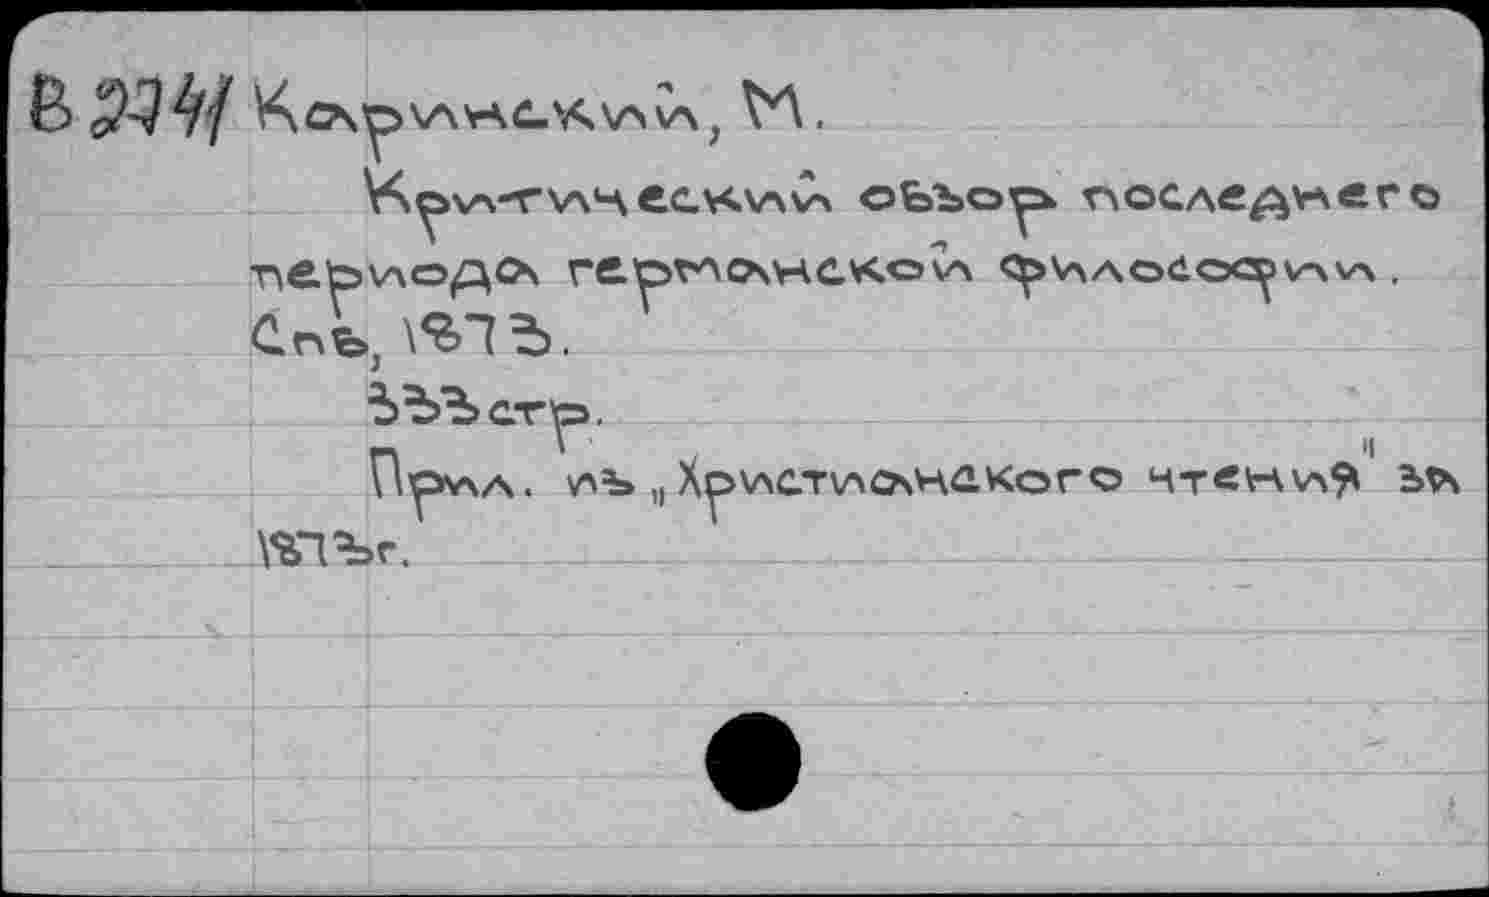 Каринский, М.
Критический обзор последнего
периода германской философии.
Спб, 1873.
333 стр.
Прил. из „Христианского чтения" за
1873г.